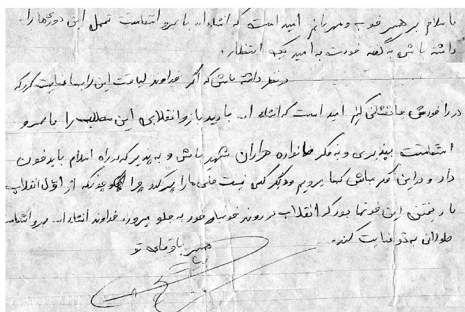 با سلام بر همسر خوب و مهربانم امید است که انشاءاله با صبر و استقامت تحمل این دوریها را
داشته باشی به گفته خودت به امید یک انتظار.
در نظر داشته باش که اگر خداوند لیاقت این را به ما عنایت کرد که
در راهش جانفشانی کنم امید است که انشاءاله با دید باز و انقلابی این مطلب را با صبر و
استقامت بپذیری و به فکر خانواده هزاران شهید باش و بپذیر که در راه اسلام باید خون
داد و در این فکر مباش که ما برویم دیگر کسی نیست جای ما را پر کند چرا چونکه از اول انقلاب
با رفتن این خونها بود که انقلاب در روند خود به جلو میرود. خداوند انشاءاله صبر و استقامت
به تو عنایت کند.
همسر باوفای تو